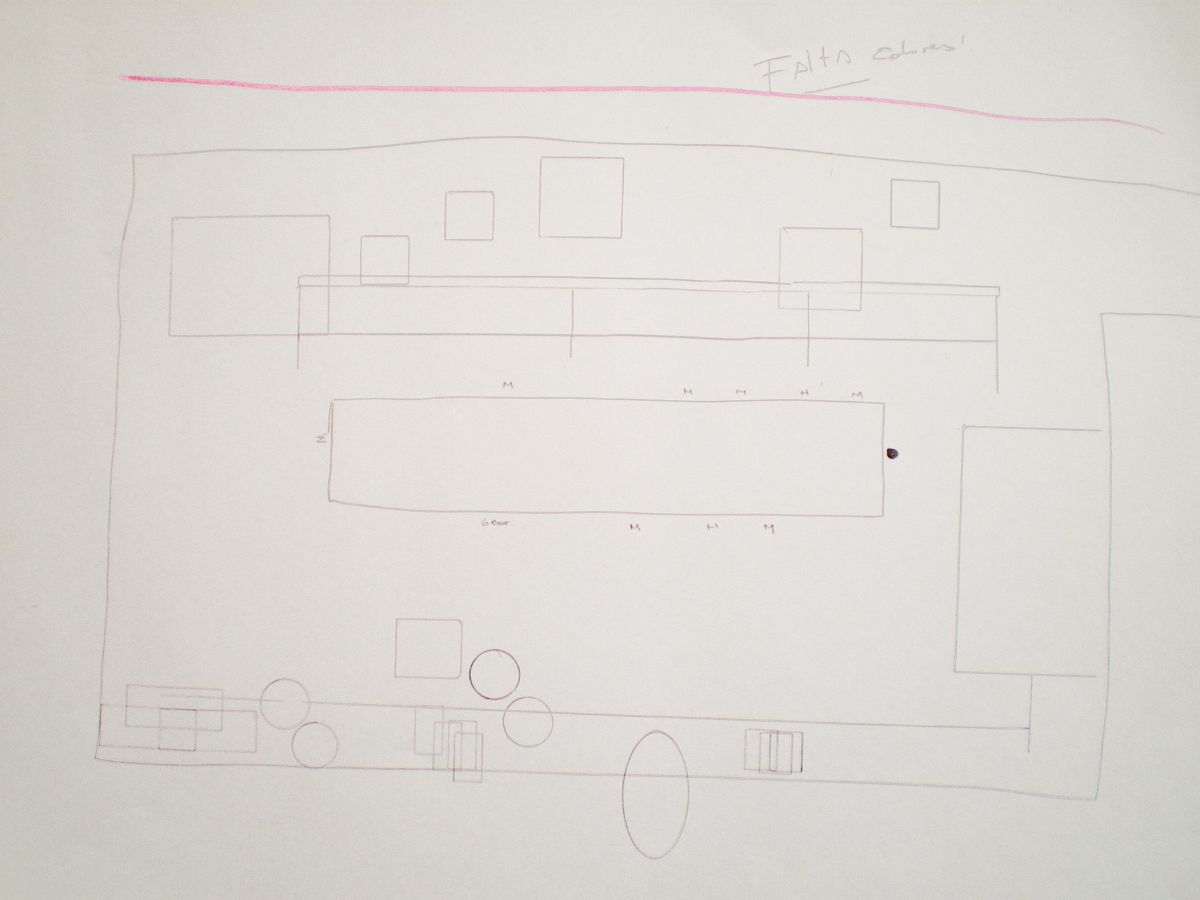 Falta colores!
M
M M H M
M
Gear
M H M